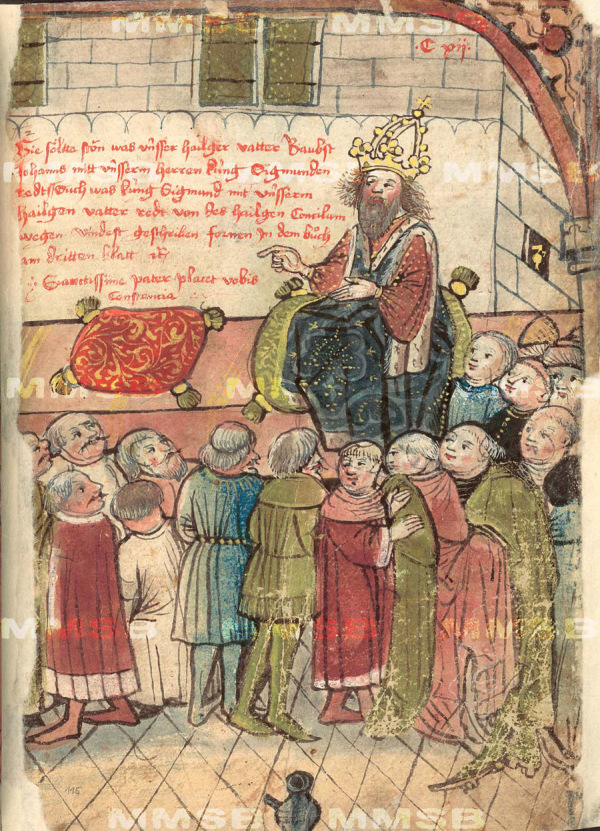 ·C xij·
Die sólta ston was vnser hailger vatter Baubst
Johanns mitt vnserm herren küng Sigmunden
redt Vnd was küng Sigmund mit vnserm
hailgen vatter redt von des hailgen Concilium
wegen vindest geschriben fornen in dem bůch
am dritten blatt
Sanctissime pater placet vobis
Constencia
115
MMSB MMSB MMSB
MMSB MMSB MMSB
MMSB MMSB MMSB
MMSB MMSB